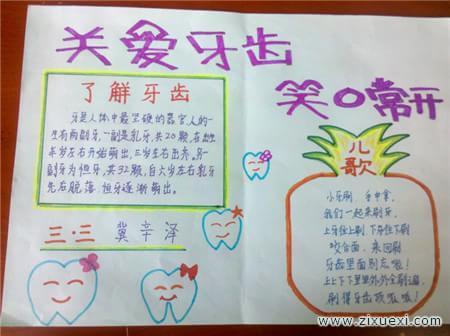 关爱牙齿
笑口常开
了解牙齿
牙是人体中最坚硬的器官,人的一
生有两副牙,一副是乳牙,共20颗,在出生
半岁左右开始萌出,三岁左右出齐。另一
副牙为恒牙,共32颗,自六岁左右乳牙
先后脱落,恒牙逐渐萌出。
三·三 冀辛泽
儿
歌
小牙刷 手中拿,
我们一起来刷牙,
上牙往上刷 下牙往下刷
咬合面,来回刷
牙齿里面别忘啦!
上上下下里里外外全刷遍,
刷得牙齿
www.zixuexi.com